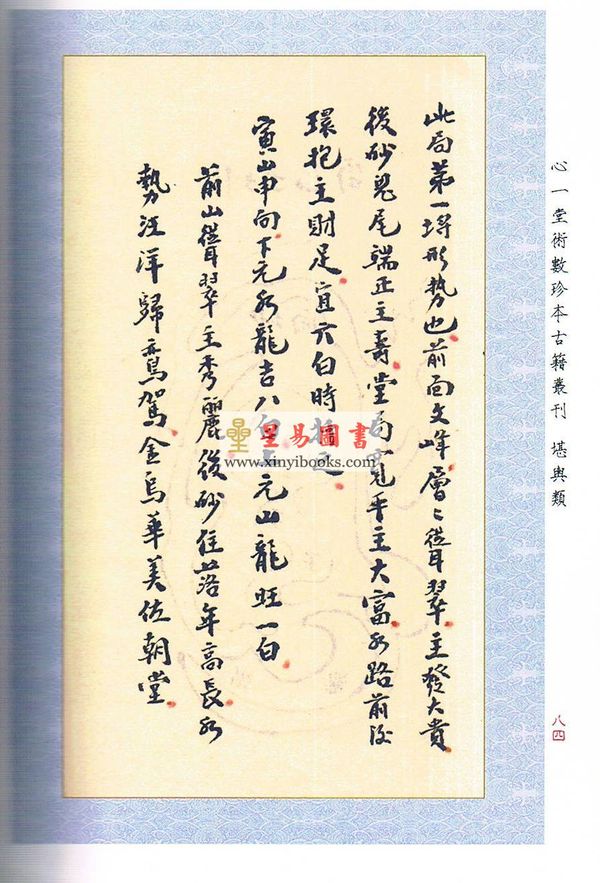 心一堂術數珍本古籍叢刊 堪輿類
八四
此局第一塲形势也前面文峰層〻聳翠主發大貴
後砂鬼尾端正主壽堂局一見平主大富水路前後
環抱主財足宜六白時
寅山申向下元水龍吉八白 元山龍旺一白
前山聳翠主秀麗後砂 落年高長水
勢汪洋歸鴛鴦 金烏華美佐朝堂
星易圖書
www.xinyibooks.com